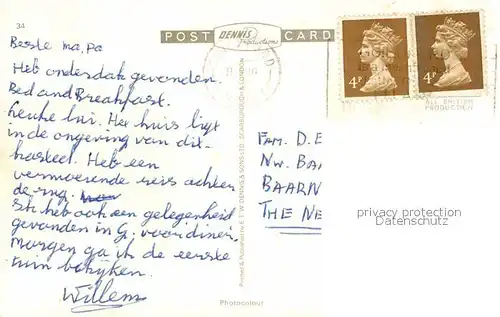 34
POST CARD
DENNIS
Productions
Beste ma, pa
Heb onderdak gevonden.
Bed and Breakfast.
Leuke lui. Het huis ligt
in de omgeving van dit
kasteel. Heb een
vermoeiende reis achter
de rug.
Ik heb ook een gelegenheid
gevonden in G. voor diner.
Morgen ga ik de eerste
tuin bekijken.
Willem
Printed & Published by E.T.W. DENNIS & SONS LTD. SCARBOROUGH & LONDON
Photocolour
4P
4P
ALL BRITISH
PRODUCTEN
FAM. D. E
NW. BA
BAARN
THE NE
privacy protection
Datenschutz